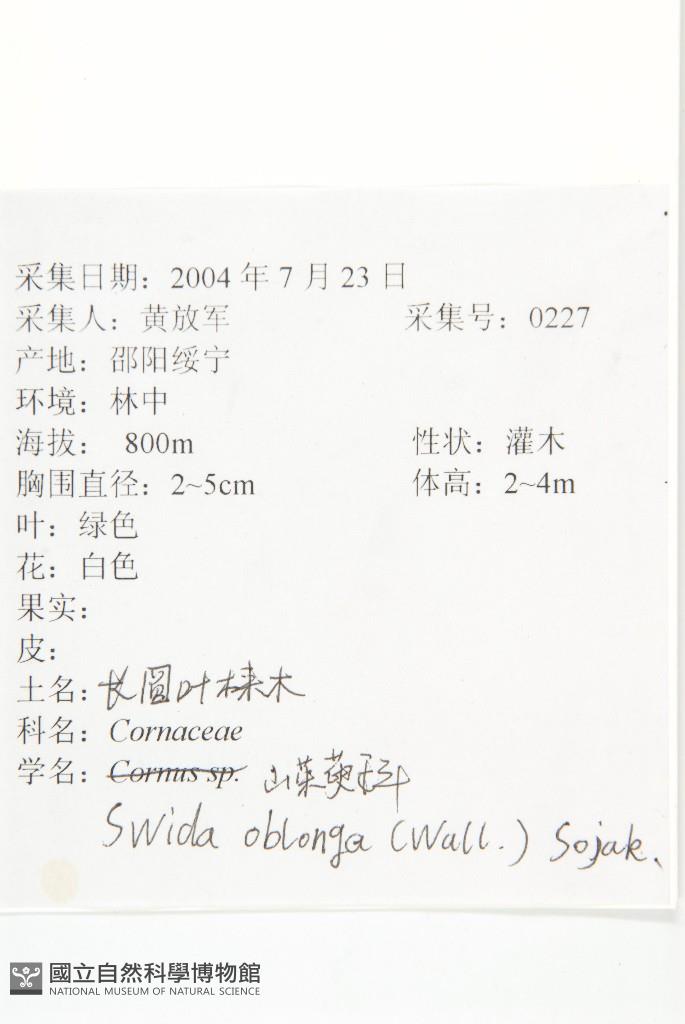 采集日期：2004 年 7 月 23 日
采集人：黄放军 采集号：0227
产地：邵阳绥宁
环境：林中
海拔： 800m 性状：灌木
胸围直径：2~5cm 体高：2~4m
叶：绿色
花：白色
果实：
皮：
土名：长圆叶梾木
科名：Cornaceae
学名：Cornus sp. 山茱萸科
Swida oblonga (Wall.) Sojak.
國立自然科學博物館
NATIONAL MUSEUM OF NATURAL SCIENCE